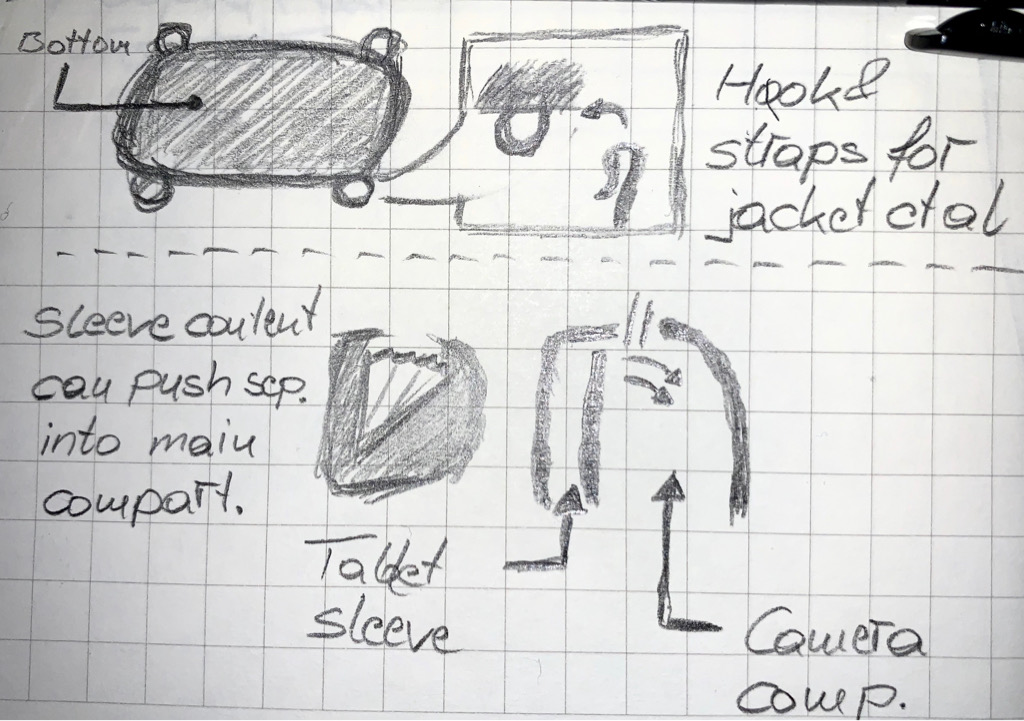 Bottom
Hook &
straps for
jacket et al
Sleeve content
can push sep.
into main
compart.
Tablet
sleeve
Camera
comp.